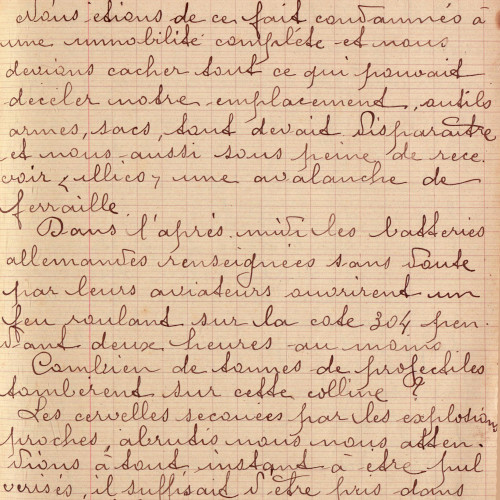 Nous etions de ce fait condamnés à
une immobilité complète et nous
devions cacher tout ce qui pouvait
déceler notre emplacement, outils
armes, sacs, tout devait disparaître
et nous aussi sous peine de rece
voir "illico" une avalanche de
ferraille
Dans l'après-midi les batteries
allemandes renseignées sans doute
par leurs aviateurs ouvrirent un
feu roulant sur la cote 304 pen.
dant deux heures au moins
Combien de tonnes de projectiles
tombèrent sur cette colline ?
Les cervelles secouées par les explosions
proches, abrutis nous nous atten-
dions à tout instant à être pul
vérisés, il suffisait d'être pris dans